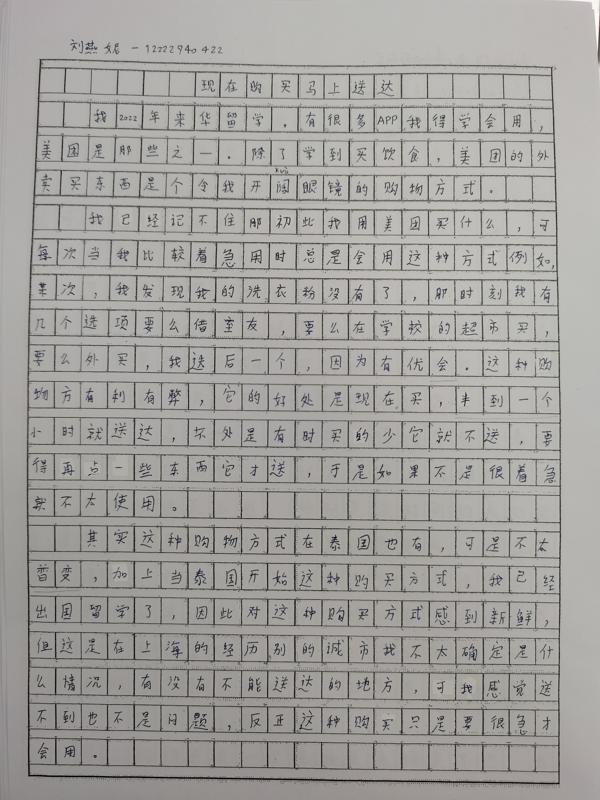 刘燕妮 - 12222940422
现在购买马上送达
我2022年来华留学。有很多APP我得学会用，
美团是那些之一。除了学到买饮食，美团的外
卖买东西是个令我开阔眼镜的购物方式。
我已经记不住那初些我用美团买什么，可
每次当我比较着急用时总是会用这种方式例如，
某次，我发现我的洗衣粉没有了，那时刻我有
几个选项要么借室友，要么在学校的超市买，
要么外买，我选后一个，因为有优会。这种购
物方有利有弊，它的好处是现在买，半到一个
小时就送达，坏处是有时买的少它就不送，要
得再点一些东西它才送，于是如果不是很着急
就不太使用。
其实这种购物方式在泰国也有，可是不太
普变，加上当泰国开始这种购买方式，我已经
出国留学了，因此对这种购买方式感到新鲜，
但这是在上海的经历别的城市我不太确定是什
么情况，有没有不能送达的地方，可我感觉送
不到也不是问题，反正这种购买只是要很急才
会用。